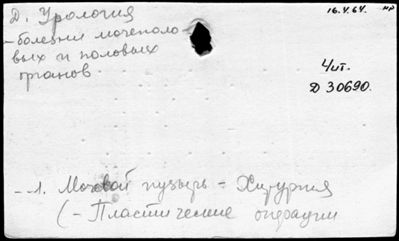 Д. Урология
16.4.64. нр
- болезни мочеполо-
вых и половых
органов.
Чит.
Д 30690.
- - 1. Мочевой пузырь = Хирургия
(- Пластические операции